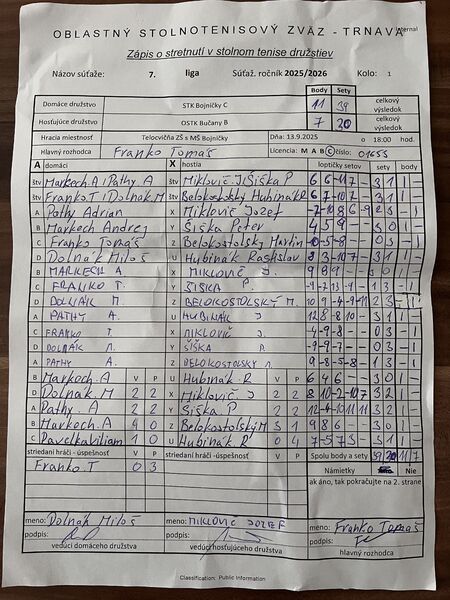 Internal
OBLASTNÝ STOLNOTENISOVÝ ZVÄZ - TRNAVA
Zápis o stretnutí v stolnom tenise družstiev
Názov súťaže: 7. liga Súťaž. ročník 2025/2026 Kolo: 1
Body Sety
Domáce družstvo STK Bojničky C 11 39 celkový výsledok
Hosťujúce družstvo OSTK Bučany B 7 20 celkový výsledok
Hracia miestnosť Telocvičňa ZŠ s MŠ Bojničky Dňa: 13.9.2025 o 18:00 hod.
Hlavný rozhodca Franko Tomáš Licencia: M A B C číslo: 01655
A domáci X hostia loptičky setov sety body
štv Markech.A i Pathy A štv Miklovič.J Šiška P 6 6 -11 7 - 3 1 1 -
štv Franko.T i Dolnák.M štv Belokostolský Hubinák R 6 7 -10 7 - 3 1 1 -
A Pathy Adrian X Miklovič Jozef
B Markech Andrej Y Šiška Peter 4 5 9 - - 3 0 1 -
C Franko Tomáš Z Belokostolský Martin -10 -5 -8 - - 0 3 - 1
D Dolnák Miloš U Hubinák Rastislav 8 3 -10 7 - 3 1 1 -
B MARKECH A. X MIKLOVIČ J. 9 8 9 - - 3 0 1 -
C FRANKO T. Y ŠIŠKA P. -9 -7 13 -9 - 1 3 - 1
D DOLNÁK M. Z BELOKOSTOLSKÝ M. 10 9 -4 -9 -11 2 3 - 1
A PATHY A. U HUBINÁK 12 8 8 -10 - 3 1 1 -
C FRANKO T. X MIKLOVIČ J. -4 -9 -8 - - 0 3 - 1
D DOLNÁK Y ŠIŠKA P. -9 -9 -7 - - 0 3 - 1
A PATHY A. Z BELOKOSTOLSKÝ 9 -8 -5 -8 - 1 3 - 1
B Markech.A V P U Hubinák.R V P 6 4 6 - - 3 0 1 -
D Dolnák.M 2 2 X Miklovič.J 2 2 8 10 -2 -10 7 3 2 1 -
A Pathy.A 2 2 Y Šiška P 2 2 12 -4 -10 11 11 3 2 1 -
B Markech.A 4 0 Z Belokostolský M 3 1 9 8 6 - - 3 0 1 -
C Pavelka Viliam 1 0 U Hubinák.R 0 4 7 -5 7 3 - 3 1 1 -
striedaní hráči - úspešnosť V P striedaní hráči - úspešnosť V P Spolu body a sety 39 20 11 7
Franko.T 0 3 Námietky Nie
ak áno, tak pokračujte na 2. strane
meno: Dolnák Miloš meno: MIKLOVIČ JOZEF meno: Franko Tomáš
podpis: podpis: podpis:
vedúci domáceho družstva vedúci hosťujúceho družstva hlavný rozhodca
Classification: Public Information